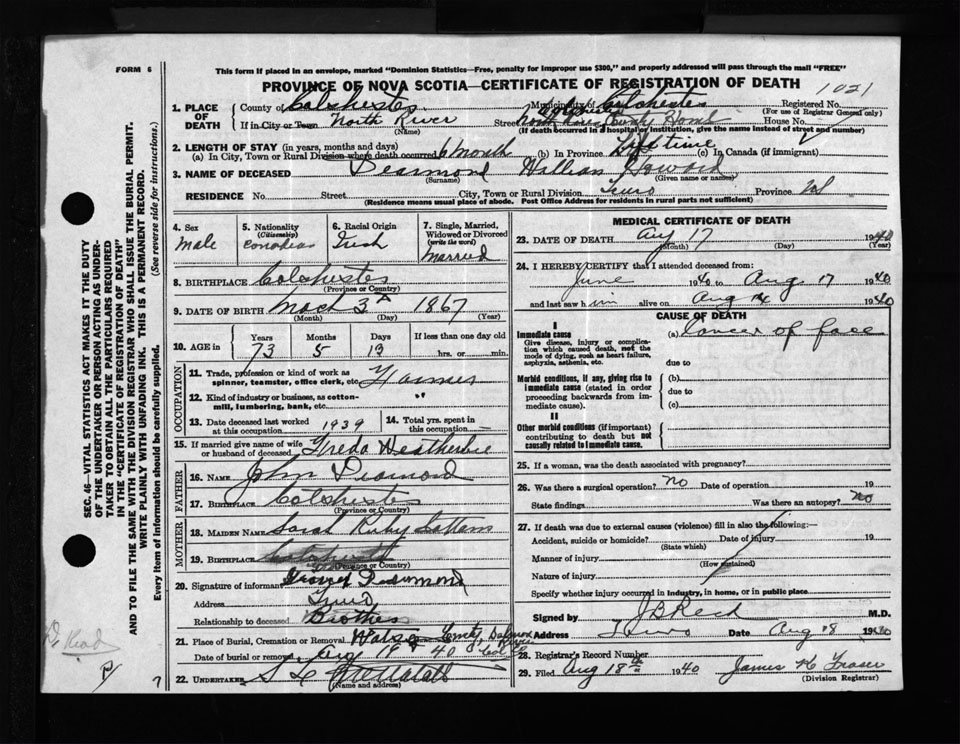 FORM 6
This form if placed in an envelope, marked "Dominion Statistics—Free, penalty for improper use $300," and properly addressed will pass through the mail "FREE"
PROVINCE OF NOVA SCOTIA—CERTIFICATE OF REGISTRATION OF DEATH
1021
1. PLACE OF DEATH
County of Colchester Municipality of Colchester Registered No.
(For use of Registrar General only)
If in City or Town North River Street County Home House No.
(Name) (If death occurred in a hospital or institution, give the name instead of street and number)
2. LENGTH OF STAY (in years, months and days)
(a) In City, Town or Rural Division where death occurred 6 month (b) In Province Life time (c) In Canada (if immigrant)
3. NAME OF DECEASED William Howard
(Surname) (Given name or names)
RESIDENCE No. Street City, Town or Rural Division Truro Province NS
(Residence means usual place of abode. Post Office Address for residents in rural parts not sufficient)
4. Sex Male
5. Nationality (Citizenship) Canadian
6. Racial Origin Irish
7. Single, Married, Widowed or Divorced (write the word) Married
8. BIRTHPLACE Colchester
(Province or Country)
9. DATE OF BIRTH March 3 1867
(Month) (Day) (Year)
10. AGE in Years 73 Months 5 Days 13 If less than one day old hrs. or min.
OCCUPATION
11. Trade, profession or kind of work as spinner, teamster, office clerk, etc. Farmer
12. Kind of industry or business, as cotton-mill, lumbering, bank, etc. "
13. Date deceased last worked at this occupation 1939
14. Total yrs. spent in this occupation
15. If married give name of wife or husband of deceased Freda Weatherbie
FATHER
16. NAME John
17. BIRTHPLACE Colchester
(Province or Country)
MOTHER
18. MAIDEN NAME Sarah Ruby
19. BIRTHPLACE
(Province or Country)
20. Signature of informant
Address Truro
Relationship to deceased Brother
21. Place of Burial, Cremation or Removal Salmon River
Date of burial or removal Aug 19 40
22. UNDERTAKER
(Name and address)
MEDICAL CERTIFICATE OF DEATH
23. DATE OF DEATH Aug 17 1940
(Month) (Day) (Year)
24. I HEREBY CERTIFY that I attended deceased from:
June 1940 to Aug 17 1940
and last saw him alive on Aug 14 1940
CAUSE OF DEATH
I
Immediate cause
Give disease, injury or complication which caused death, not the mode of dying, such as heart failure, asphyxia, asthenia, etc.
(a) Cancer of face
due to
Morbid conditions, if any, giving rise to immediate cause (stated in order proceeding backwards from immediate cause).
(b)
due to
(c)
II
Other morbid conditions (if important) contributing to death but not causally related to immediate cause.
25. If a woman, was the death associated with pregnancy?
26. Was there a surgical operation? no Date of operation 19
State findings Was there an autopsy? no
27. If death was due to external causes (violence) fill in also the following:—
Accident, suicide or homicide? Date of injury 19
(State which)
Manner of injury
(How sustained)
Nature of injury
Specify whether injury occurred in industry, in home, or in public place
Signed by J B Reid M.D.
Address Truro Date Aug 18 1940
28. Registrar's Record Number
29. Filed Aug 18th 1940 James K Fraser
(Division Registrar)
SEC. 46—VITAL STATISTICS ACT MAKES IT THE DUTY OF THE UNDERTAKER OR PERSON ACTING AS UNDERTAKER TO OBTAIN ALL THE PARTICULARS REQUIRED IN THE "CERTIFICATE OF REGISTRATION OF DEATH" AND TO FILE THE SAME WITH THE DIVISION REGISTRAR WHO SHALL ISSUE THE BURIAL PERMIT.
WRITE PLAINLY WITH UNFADING INK. THIS IS A PERMANENT RECORD.
Every item of information should be carefully supplied. (See reverse side for instructions.)
7